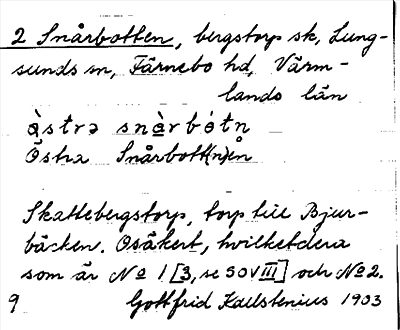 2 Snårbotten, bergstorp sk, Lung-
sunds sn, Färnebo hd, Värm-
lands län
àstrə snàrbótn
Östra Snårbott(n)en
Skattebergstorp, torp till Bjur-
bäcken. Osäkert, hvilketdera
som är No 1 [3, se SOV VIII] och No 2.
9 Gottfrid Kallstenius 1903